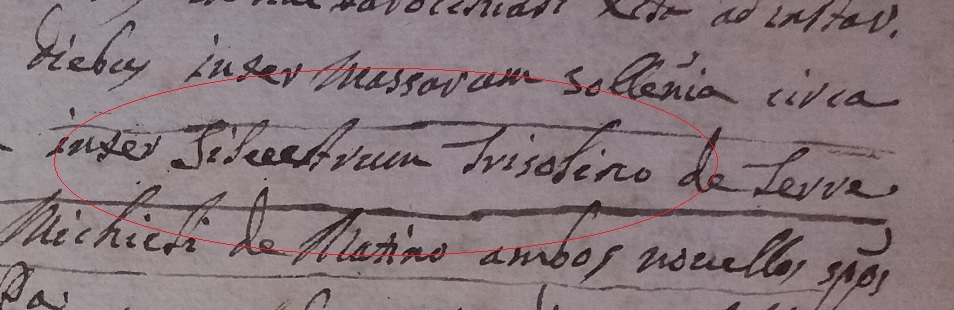 diebus inter Missarum sollẽnia circa
inter Silvestrum Trisolino de Terra
Michieli de Matino ambos novellos spõs